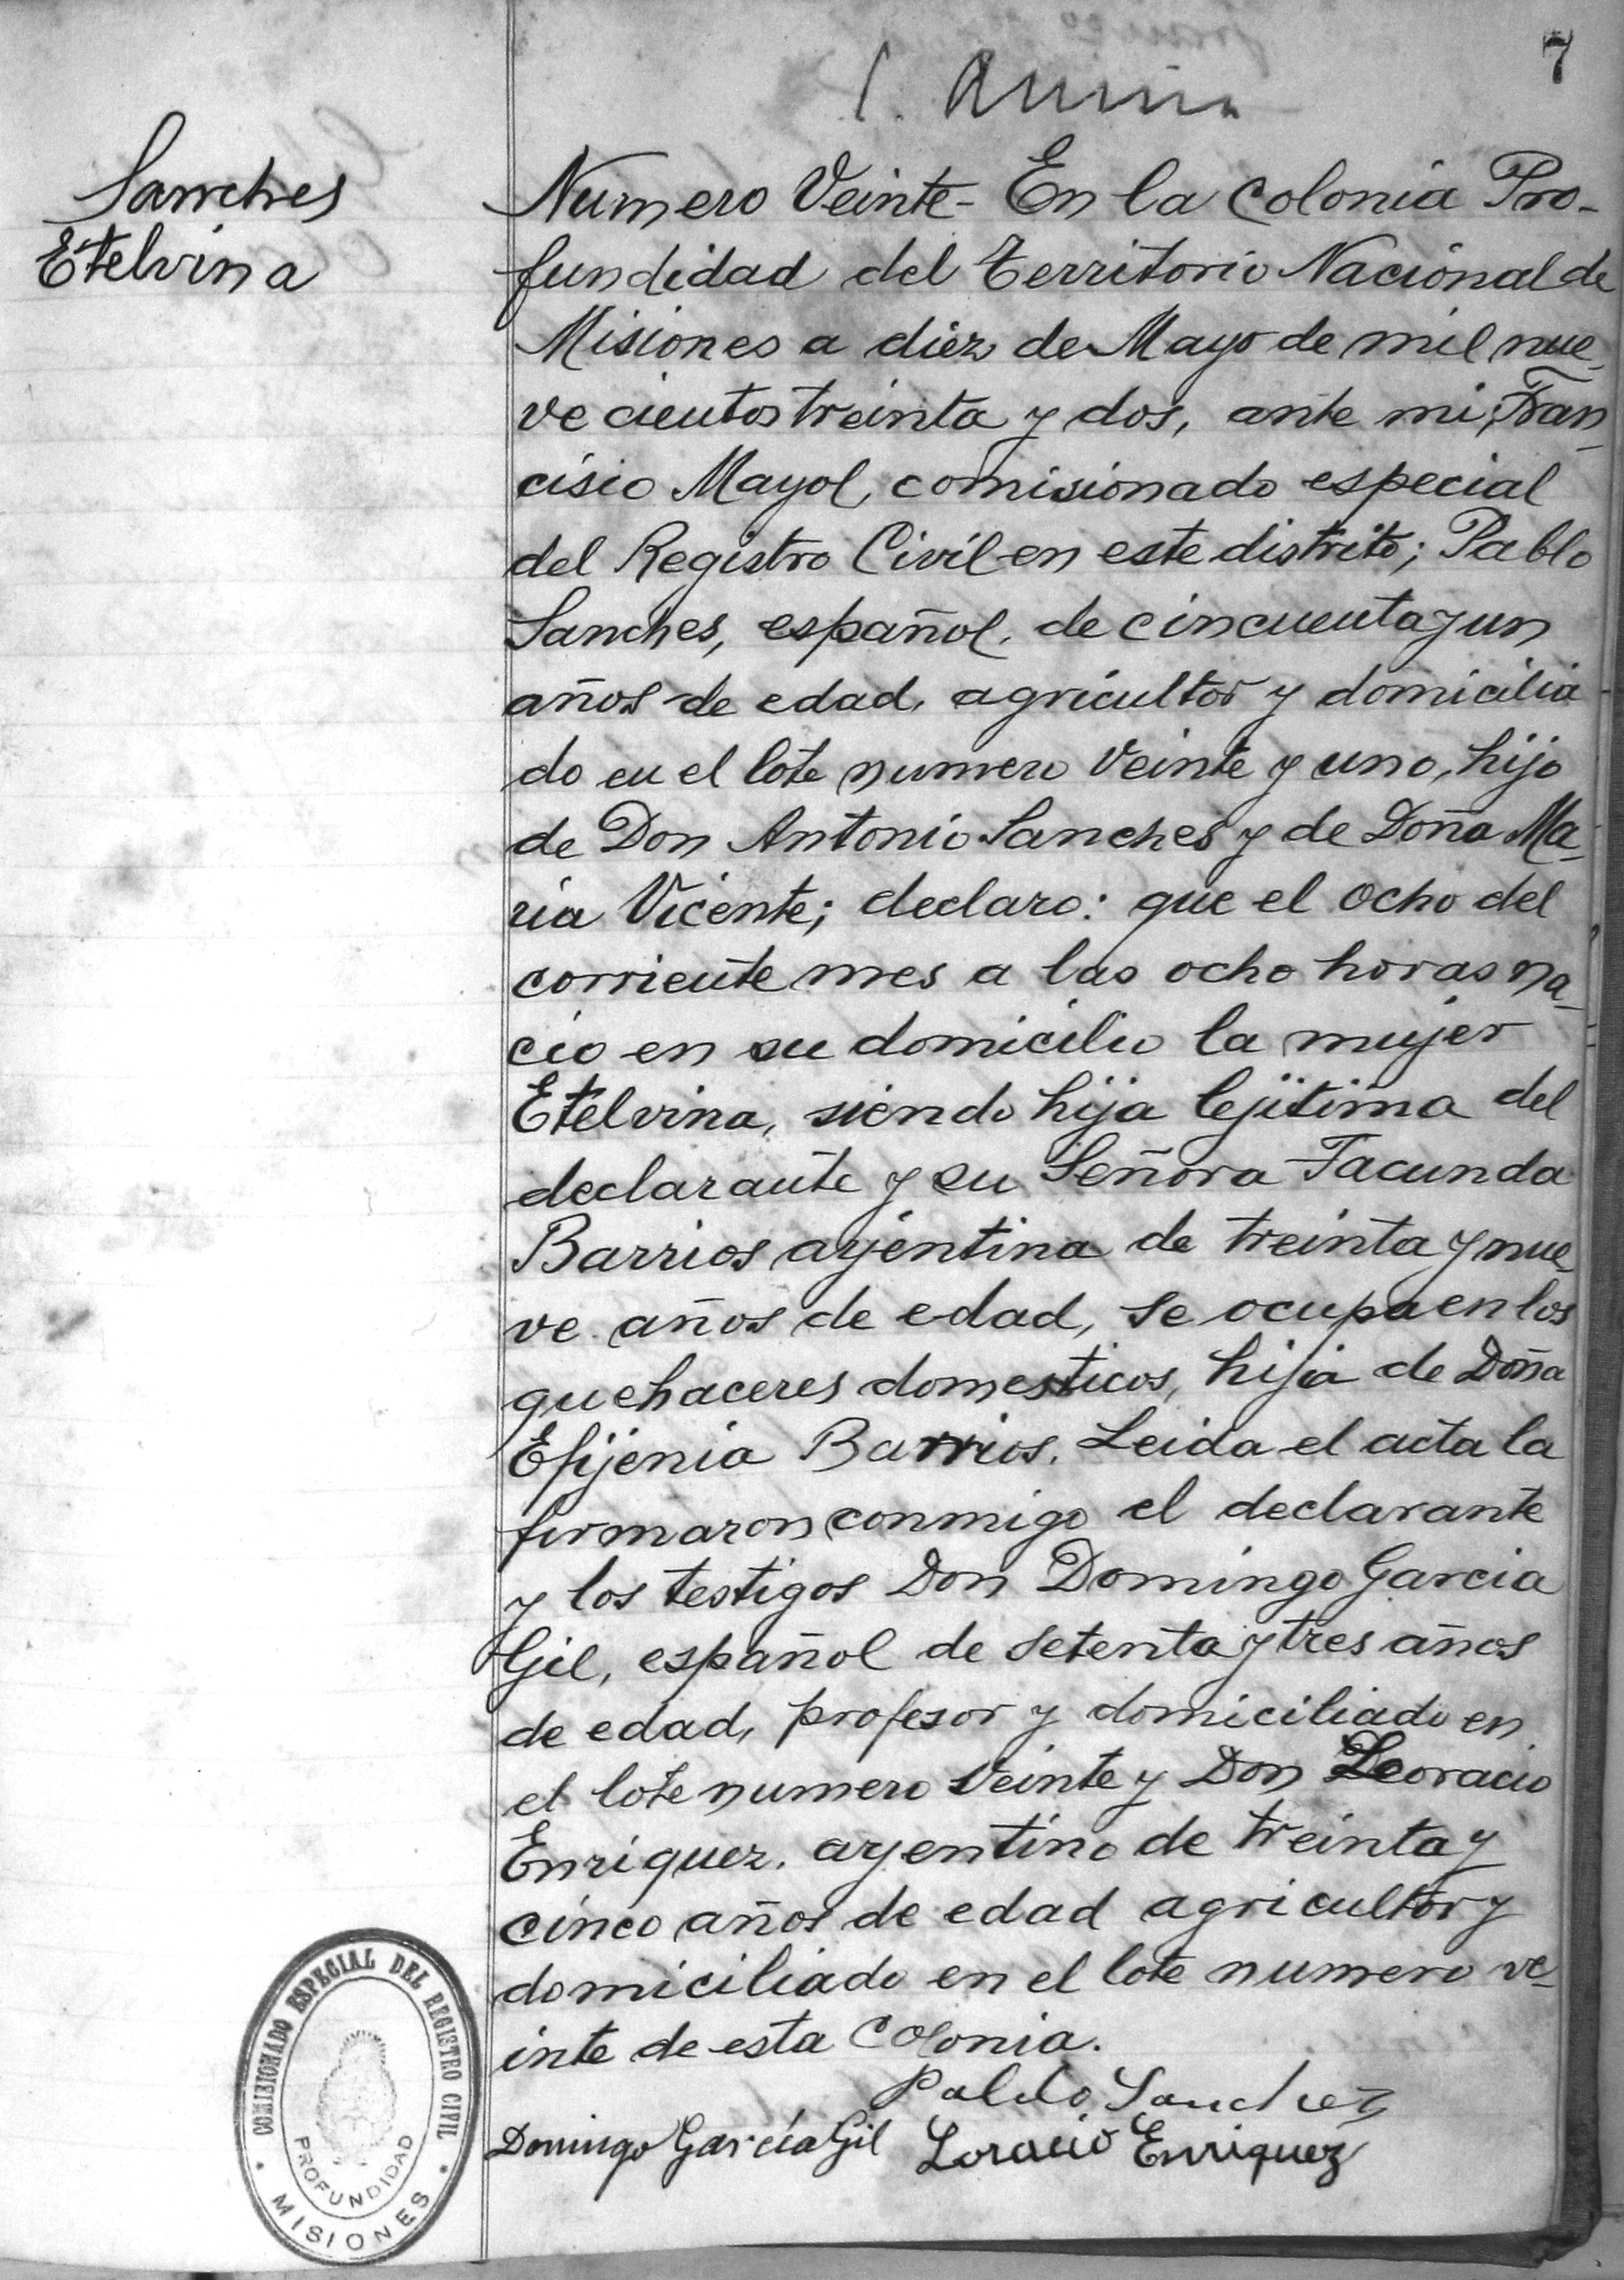 7
Sanches
Etelvina
Numero Veinte - En la Colonia Pro-
fundidad del Territorio Nacional de
Misiones a diez de Mayo de mil nue-
ve cientos treinta y dos, ante mi, Fran-
cisio Mayol, comisionado especial
del Registro Civil en este distrito; Pablo
Sanches, español, de cincuenta y un
años de edad, agricultor y domicilia
do en el lote numero Veinte y uno, hijo
de Don Antonio Sanches y de Doña Ma-
ria Vicente; declaro: que el ocho del
corriente mes a las ocho horas na-
cio en su domicilio la mujer
Etelvina, siendo hija lejitima del
declarante y su Señora Facunda
Barrios arjentina de treinta y nue-
ve años de edad, se ocupa en los
quehaceres domesticos, hija de Doña
Efijenia Barrios. Leida el acta la
firmaron conmigo el declarante
y los testigos Don Domingo Garcia
Gil, español de setenta y tres años
de edad, profesor y domiciliado en
el lote numero Veinte y Don Leoracio
Enriquez, arjentino de treinta y
cinco años de edad agricultor y
domiciliado en el lote numero ve-
inte de esta Colonia.
Pablo Sanchez
Domingo García Gil Loracio Enriquez
COMISIONADO ESPECIAL DEL REGISTRO CIVIL
PROFUNDIDAD
MISIONES